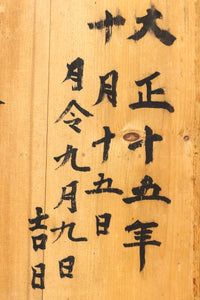 大正十五年
十月十五日
月令九月九日
吉日